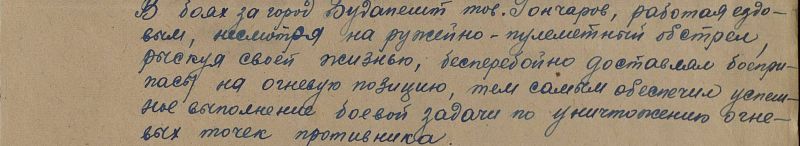 В боях за город Будапешт тов. Гончаров, работая ездо-
вым, несмотря на ружейно-пулеметный обстрел,
рыскуя своей жизнью, бесперебойно доставлял боепри-
пасы на огневую позицию, тем самым обеспечил успеш-
ное выполнение боевой задачи по уничтожению огне-
вых точек противника.